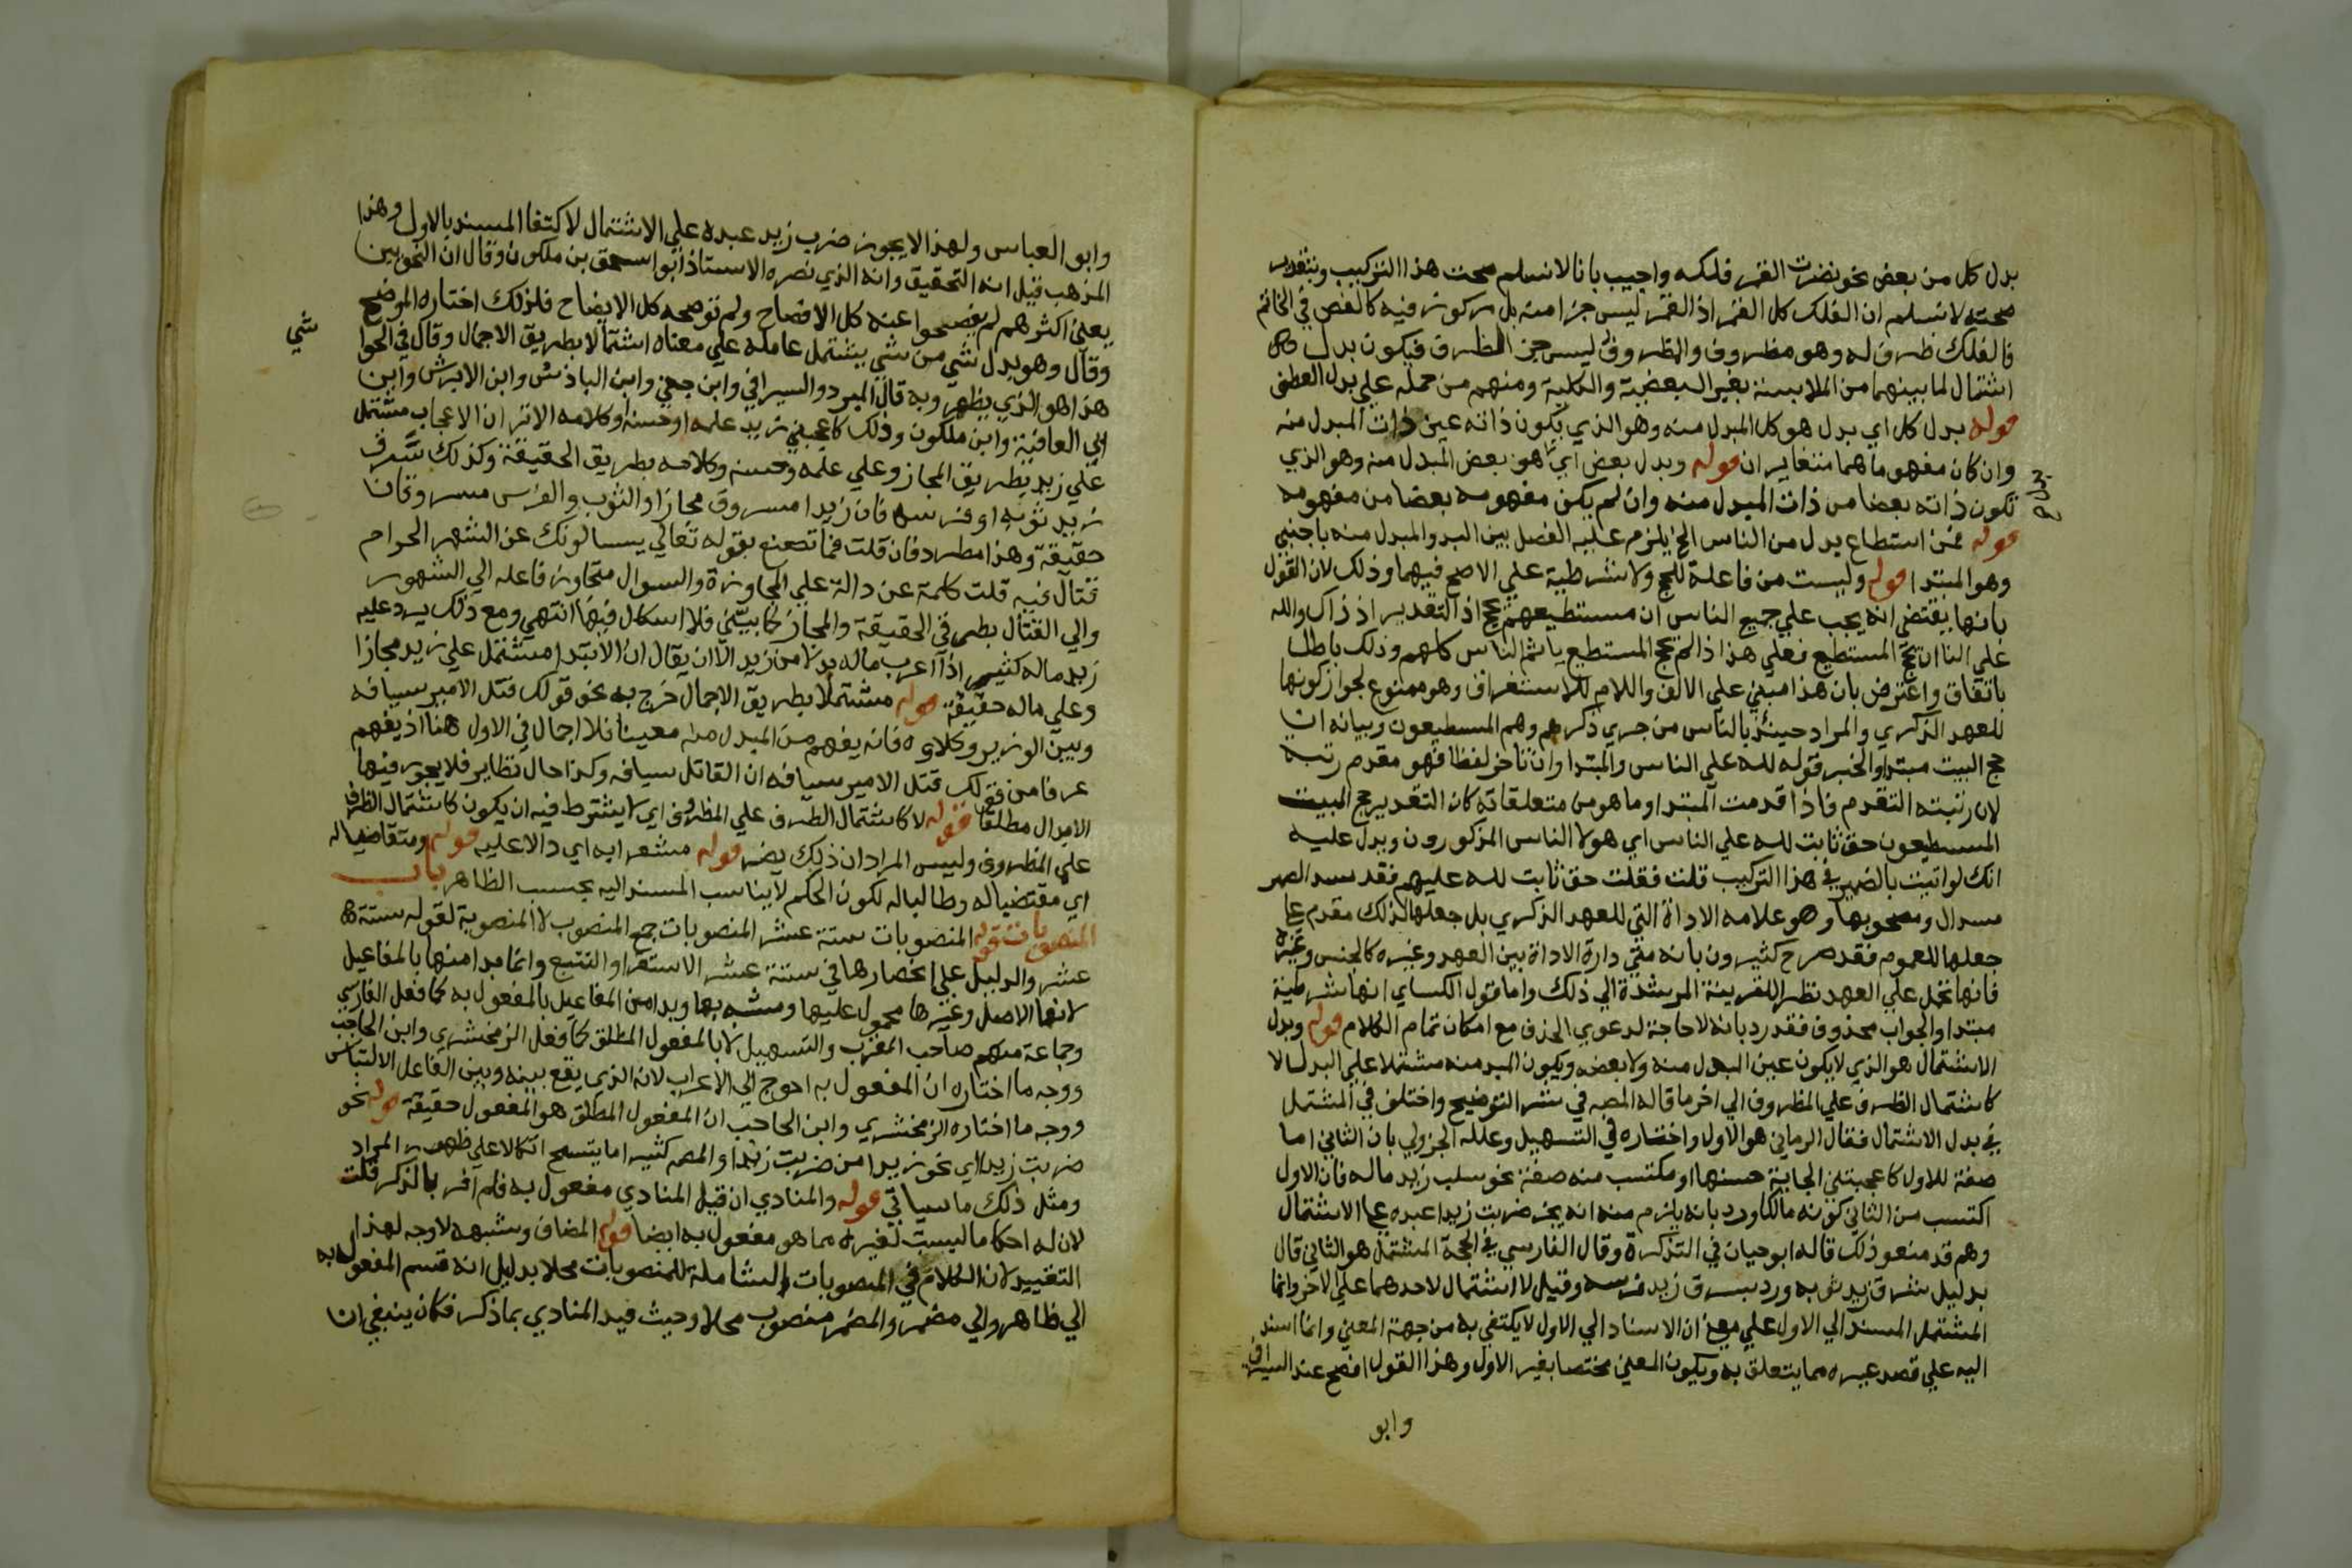 بدل كل من بعض نحو نضرت القمر فلكه واجيب بانا لا نسلم صحت هذا التركيب وبتقدير
صحته لا نسلم ان الفلك كل القمر اذ القمر ليس جزا منه بل مركوز فيه كالفص في الخاتم
فالفلك ظرف له وهو مظروف والمظروف ليس جز الظرف فيكون بدل
اشتمال لما بينهما من الملابسة بغير البعضية والكلية ومنهم من حمله علي بدل
قوله بدل كل اي بدل هو كل المبدل منه وهو الذي يكون ذاته عين ذات المبدل منه
وان كان مفهوماهما متغايران قوله وبدل بعض اي هو بعض المبدل منه وهو الذي
تكون ذاته بعضا من ذات المبدل منه وان لم يكن مفهومه بعضا من مفهومه
قوله فمن استطاع بدل من الناس الخ يلزم عليه الفصل بين البد والمبدل منه باجنبي
وهو المبتدا قوله وليست من فاعلة للحج ولا شرطية علي الاصح فيهما وذلك لان القول
بانها يقتضي انه يجب علي جميع الناس ان مستطيعهم يحج اذ التقدير اذ ذاك ولله
علي الناس ان يحج المستطيع فعلي هذا اذا لم يحج المستطيع ياثم الناس كلهم وذلك باطل
باتفاق واعترض بان هذا مبني علي الالف واللام للاستغراق وهو ممنوع لجواز كونها
للعهد الذكري والمراد حينئذ بالناس من جري ذكرهم وهم المسطيعون وبيانه ان
حج البيت مبتدا والخبر قوله لله علي الناس والمبتدا وان تاخر لفظا فهو مقدم رتبة
لان رتبته التقدم فاذا قدمت المبتدا وما هو من متعلقاته كان التقدير حج البيت
المسطيعون حق ثابت لله علي الناس اي هولا الناس المذكورون وبدل عليه
انك لو اتيت بالضمير في هذا التركيب قلت فقلت حق ثابت لله عليهم فقد سد الضمير
مسد ال ومصحوبها وهو علامه الاداة التي للعهد الذكري بل جعلها لذلك مقدم علي
جعلها للعموم فقد صرح كثيرون بانه متي دارة الاداة بين العهد وغيره كالجنس وغيره
فانها تحمل علي العهد نظرا للقرينة المرشدة الي ذلك واما قول الكساي انها شرطية
مبتدا والجواب محذوف فقد رد بانه لا حاجة لدعوي الحذف مع امكان تمام الكلام قوله وبدل
الاشتمال هو الذي لا يكون عين المبدل منه ولا بعضه ويكون المبد منه مشتملا علي البدل لا
كاشتمال الظرف علي المظروف الي اخر ما قاله المصه في شر التوضيح واختلف في المشتمل
في بدل الاشتمال فقال الرماني هو الاول واختاره في التسهيل وعلله الجزولي بان الثاني اما
صفة للاول كاعجبتني الجاية حسنها او مكتسب منه صفة نحو سلب زيد ماله فان الاول
اكتسب من الثاني كونه مالكا ورد بانه يلزم منه انه يجز ضربت زيدا عبده علي الاشتمال
وهم قد منعوا ذلك قاله ابو حيان في التذكرة وقال الفارسي في الحجة المشتمل هو الثاني قال
بدليل سرق زيد ثوبه ورد بسرق زيد فرسه وقيل لا اشتمال لاحدهما علي الاخر وانما
المشتمل المسند الي الاول علي معني ان الاسناد الي الاول لا يكتفي به من جهة المعني وانما اسند
اليه علي قصد غيره مما يتعلق به ويكون المعني مختصا بغير الاول وهذا القول افصح عند السيرافي
وابو
وابو العباس ولهذا لا يجوز ضرب زيد عبده علي الاشتمال لاكتفا المسند بالاول وهذا
المذهب قيل انه التحقيق وانه الذي نصره الاستاذ ابو اسحق بن ملكون وقال ان النحويين
يعني اكثرهم لم يفصحوا عنه كل الافصاح ولم توضحه كل الايضاح فلذلك اختاره الموضح
وقال وهو بدل شي من شي يشتمل عامله علي معناه اشتمالا بطريق الاجمال وقال في الحوا
شي
هذا هو الذي يظهر وبه قال المبرد والسيرافي وابن جني وابن الباذش وابن الابرش وابن
ابي العافية وابن ملكون وذلك كاعجبني زيد علمه او حسنه او كلامه الا تر ان الاعجاب مشتمل
علي زيد بطريق المجاز وعلي علمه وحسنه وكلامه بطريق الحقيقة وكذلك سرق
زيد ثوبه او فرسه فان زيدا مسروق مجازا والثوب والفرس مسروقان
حقيقة وهذا مطرد فان قلت فما تصنع بقوله تعالي يسالونك عن الشهر الحرام
قتال فيه قلت كلمة عن دالة علي المجاوزة والسوال متجاوز فاعله الي الشهر
والي القتال بطر في الحقيقة والمجاز كما بيني فلا اشكال فيها انتهي ومع ذلك يرد عليه
زيد ماله كثير اذا اعرب ماله بدلا من زيد الا ان يقال ان الابتدا مشتمل علي زيد مجازا
وعلي ماله حقيقة قوله مشتملا بطريق الاجمال خرج به نحو قولك قتل الامير سيافه
وبين الوزير وكلاوه فانه يفهم من المبدل منه معينا فلا اجمال في الاول هنا اذ يفهم
عرفا من قولك قتل الامير سيافه ان القاتل سيافه وكذا حال نظاير فلا يجوز فيها
الابدال مطلقا قوله لا كاشتمال الظرف علي المظروف اي لا يشترط فيه ان يكون كاشتمال الظرف
علي المظروف وليس المراد ان ذلك يضر قوله مشعرا به اي دالا عليه قوله ومتقاضيا له
اي مقتضيا له وطالبا له لكون الحكم لا يناسب المسند اليه بحسب الظاهر باب
المنصوبات قوله المنصوبات ستة عشر المنصوبات جمع المنصوب لا المنصوبة لقوله ستة
عشر والدليل علي انحصارها في ستة عشر الاستقرا والتتبع وانما بدا منها بالمفاعيل
لانها الاصل وغيرها محمول عليها ومشبه بها وبدا من المفاعيل بالمفعول به كما فعل الفارسي
وجماعة منهم صاحب المقرب والتسهيل لا بالمفعول المطلق كما فعل الزمخشري وابن الحاجب
ووجه ما اختاره ان المفعول به احوج الي الاعراب لانه الذي يقع بينه وبين الفاعل الالتباس
ووجه ما اختاره الزمخشري وابن الحاجب ان المفعول المطلق هو المفعول حقيقة قوله نحو
ضربت زيدا اي نحو زيدا من ضربت زيدا والمصه كثيرا ما يتسمح اتكالا علي ظهور المراد
ومثل ذلك ما سياتي قوله والمنادي ان قيل المنادي مفعول به فلم افر بالذكر قلت
لان له احكاما ليست لغيره مما هو مفعول به ايضا قوله المضاف وشبهه لا وجه لهذا
التقييد لان الكلام في المنصوبات الشاملة للمنصوبات محلا بدليل انه قسم المفعول به
الي ظاهر والي مضمر والمضمر منصوب محلا وحيث قيد المنادي بما ذكر فكان ينبغي ان